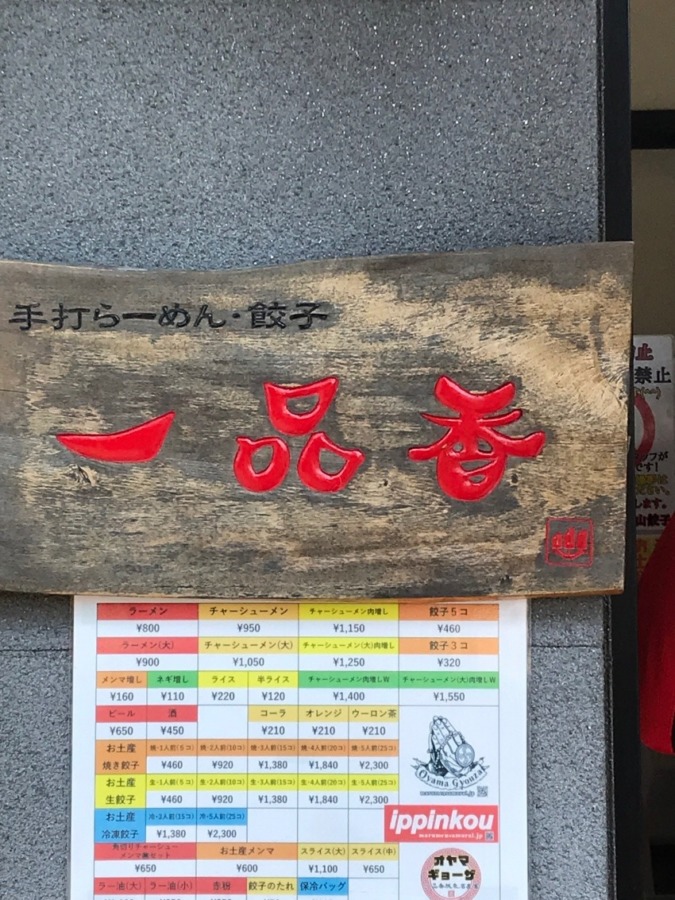 手打らーめん・餃子
一品香
ラーメン チャーシューメン チャーシューメン肉増し 餃子5コ
¥800 ¥950 ¥1,150 ¥460
ラーメン(大) チャーシューメン(大) チャーシューメン(大)肉増し 餃子3コ
¥900 ¥1,050 ¥1,250 ¥320
メンマ増し ネギ増し ライス 半ライス チャーシューメン肉増しW チャーシューメン(大)肉増しW
¥160 ¥110 ¥220 ¥120 ¥1,400 ¥1,550
ビール 酒 コーラ オレンジ ウーロン茶
¥650 ¥450 ¥210 ¥210 ¥210
お土産 焼-1人前(5コ) 焼-2人前(10コ) 焼-3人前(15コ) 焼-4人前(20コ) 焼-5人前(25コ)
焼き餃子 ¥460 ¥920 ¥1,380 ¥1,840 ¥2,300
お土産 生-1人前(5コ) 生-2人前(10コ) 生-3人前(15コ) 生-4人前(20コ) 生-5人前(25コ)
生餃子 ¥460 ¥920 ¥1,380 ¥1,840 ¥2,300
お土産 冷-3人前(15コ) 冷-5人前(25コ)
冷凍餃子 ¥1,380 ¥2,300
角切りチャーシュー
メンマ無セット お土産メンマ スライス(大) スライス(中)
¥650 ¥600 ¥1,100 ¥650
ラー油(大) ラー油(小) 赤粉 餃子のたれ 保冷バッグ
Oyama Gyouza
ippinkou
marumensamurai.jp
オヤマ
ギョーザ
禁止
します。
山餃子